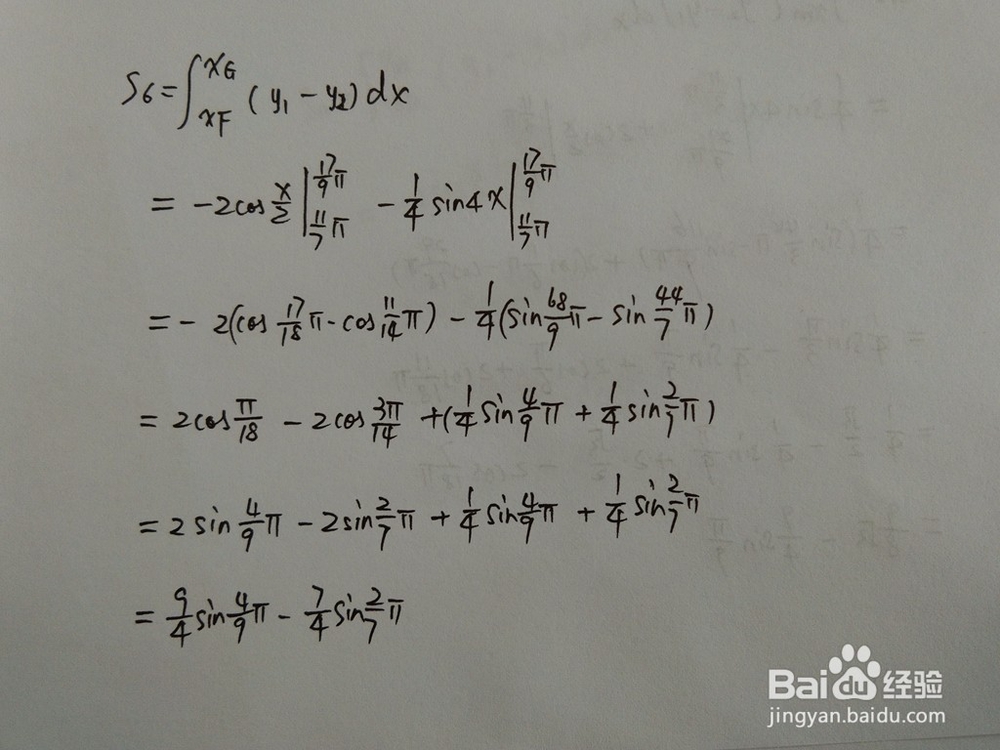 S₆ = ∫_{x_F}^{x_G} (y₁ − y₂) dx
= −2cos x/2 |_{11/7 π}^{17/9 π} − 1/4 sin4x |_{11/7 π}^{17/9 π}
= −2(cos 17/18 π − cos 11/14 π) − 1/4 (sin 68/9 π − sin 44/7 π)
= 2cos π/18 − 2cos 3π/14 + (1/4 sin 4/9 π + 1/4 sin 2/7 π)
= 2 sin 4/9 π − 2 sin 2/7 π + 1/4 sin 4/9 π + 1/4 sin 2/7 π
= 9/4 sin 4/9 π − 7/4 sin 2/7 π
Baidu经验
jingyan.baidu.com